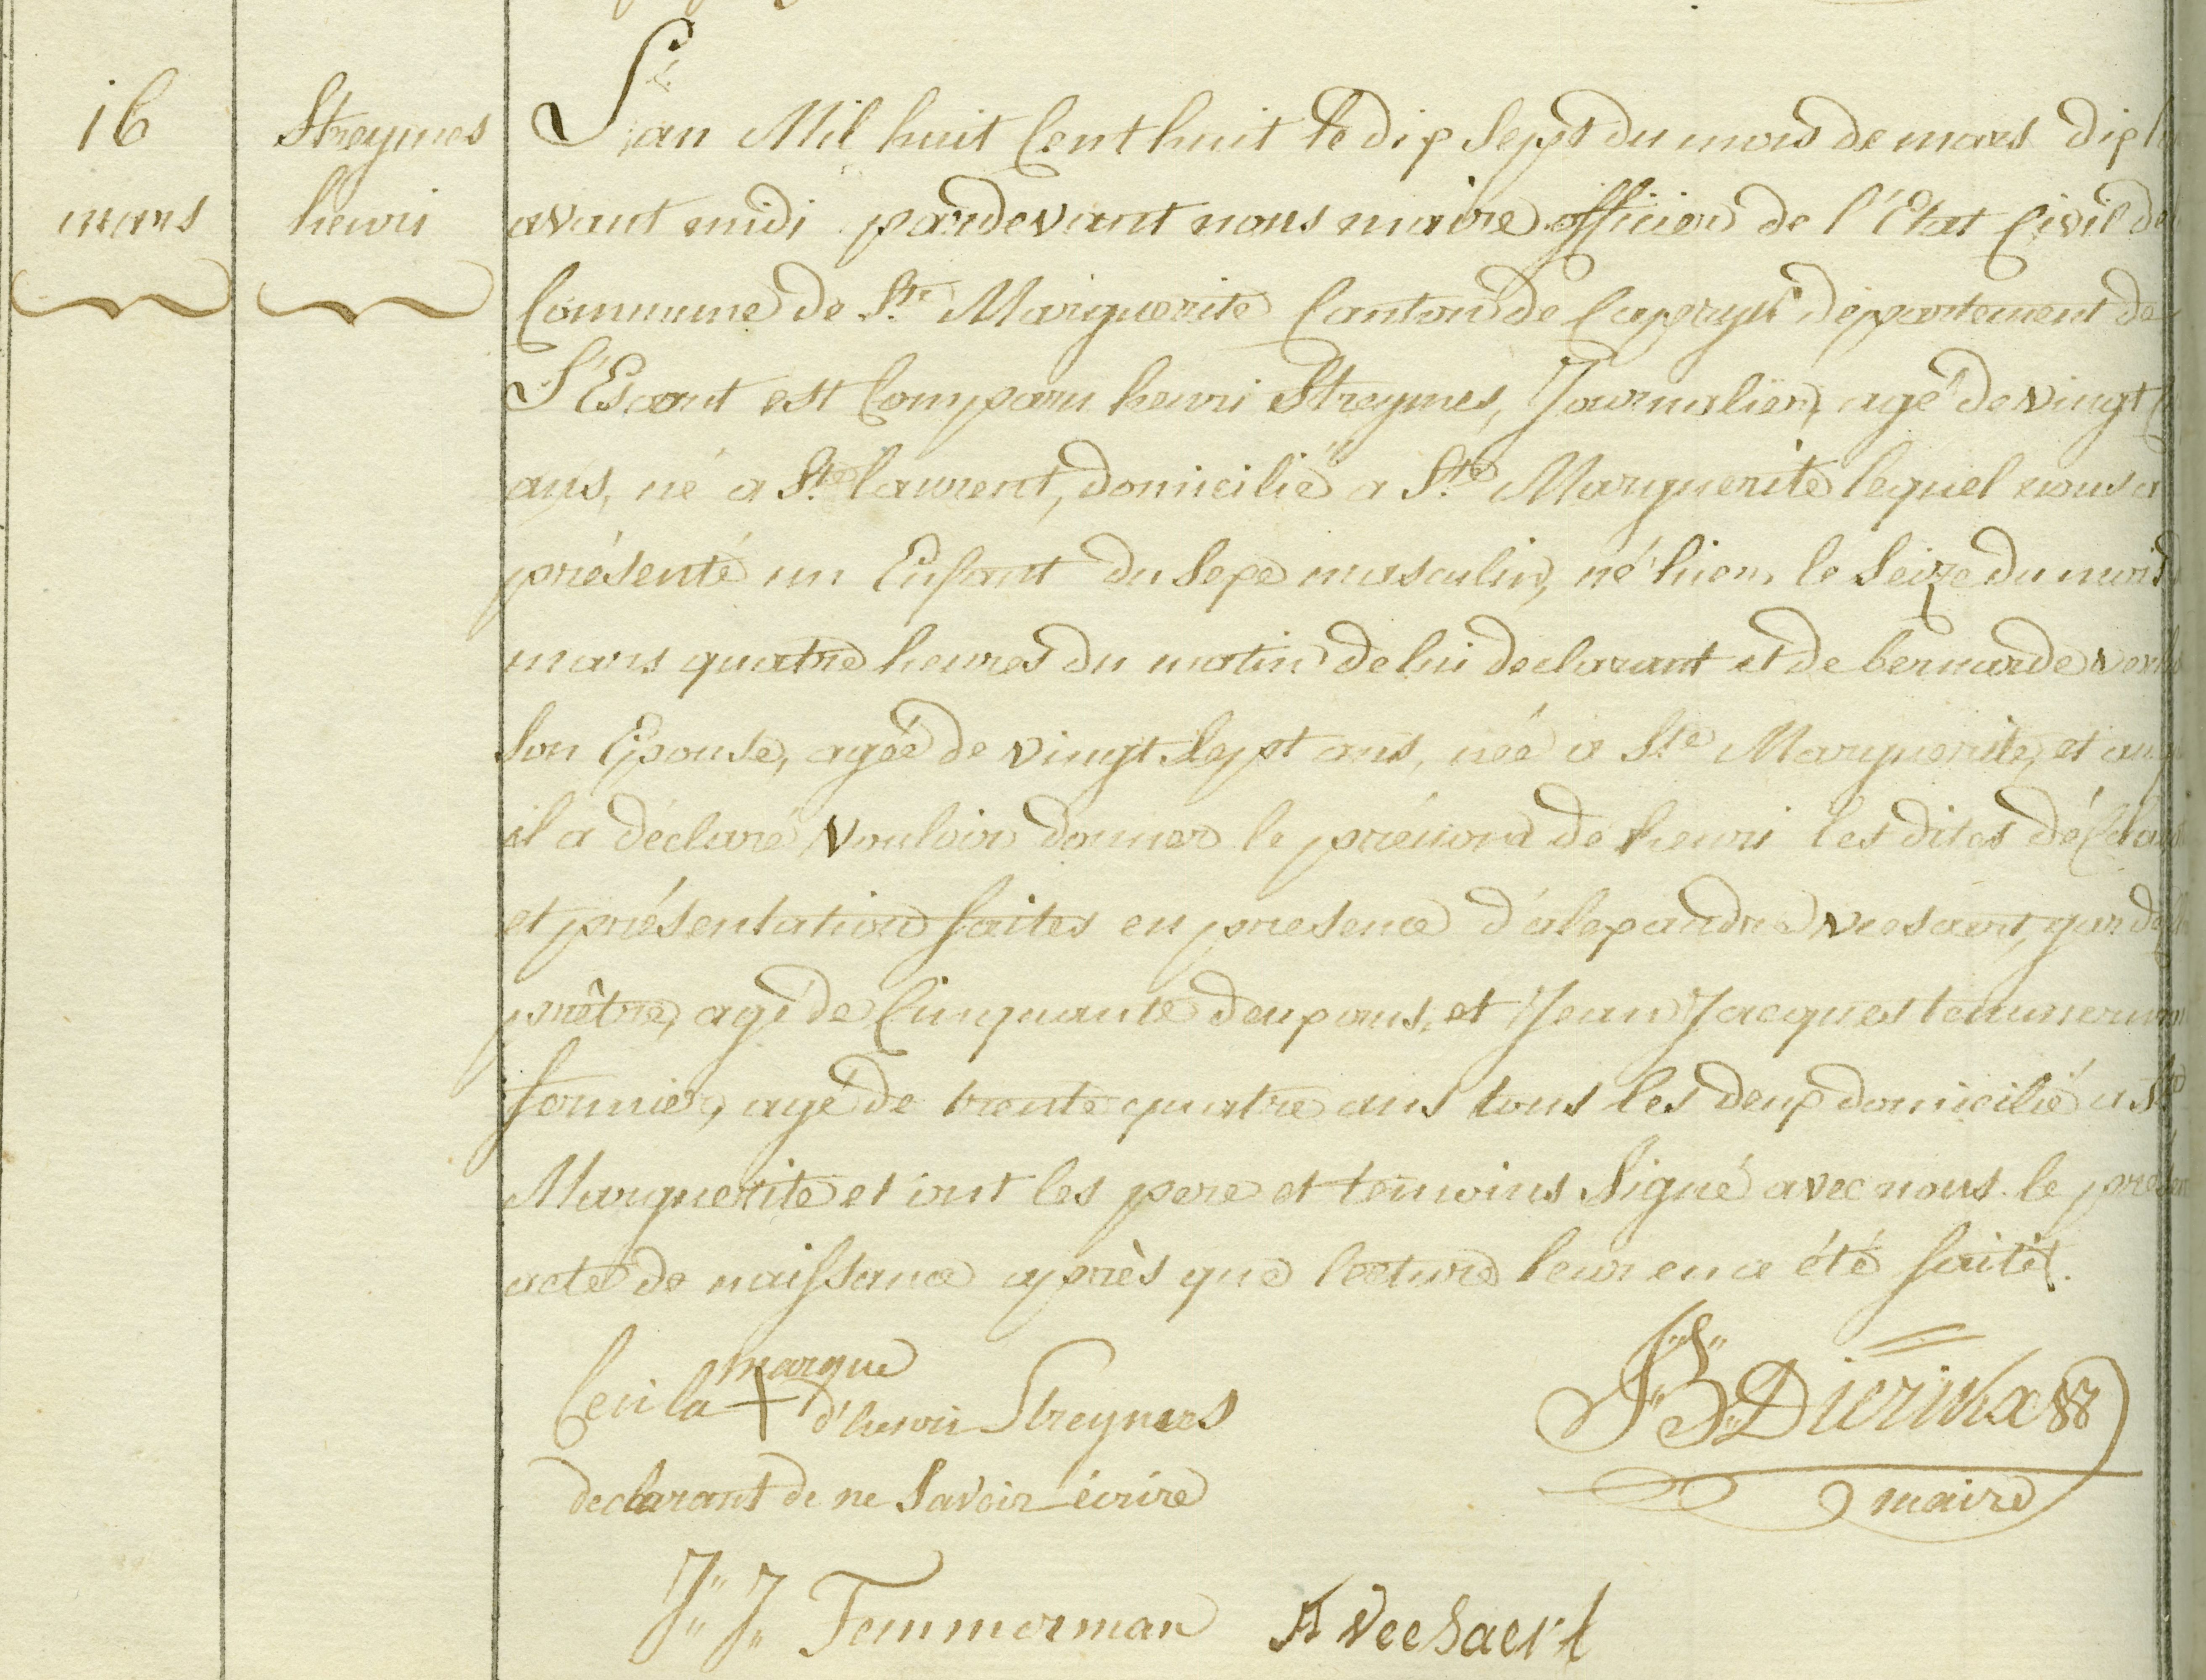 16
mars
Streymes
henri
L'an Mil huit Cent huit le dix Sept du mois de mars dix
avant midi pardevant nous maire officier de l'Etat Civil de
Commune de Ste Marguerite Canton de Capryk département de
L'Escaut est Comparu henri Streymes, Journalier, agé de vingt
ans, né a St laurent, domicilié a Ste Marguerite lequel nous a
présenté un Enfant du Sexe masculin, né hier, le Seize du mois
mars quatre heures du matin de lui declarant et de bernarde
Son Epouse, agéé de vingt Sept ans, néé a Ste Marguerite, et
il a déclaré vouloir donner le prénom de henri les dites
et présentation faites en presence d'alexandre veesaert, garde
prêtre, agé de Cinquante deux ans, et Jean Jacques temmerman
fermier, agé de trente quatre ans tous les deux domicilié a Ste
Marguerite et ont les pere et temoins Signé avec nous le présent
acte de naissance après que lecture leur en a été faite.
Ceci la marque + d'henri Streymes
declarant de ne Savoir écrire
J. B. Dierikx
maire
J. J. Temmerman A Veesaert